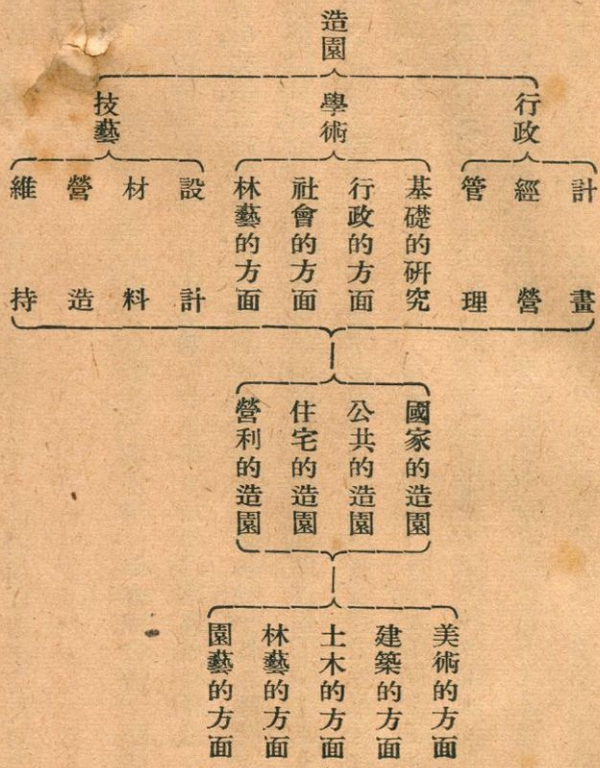 造園
行政
學術
技藝
計畫
經營
管理
基礎的研究
行政的方面
社會的方面
林藝的方面
設計
材料
營造
維持
國家的造園
公共的造園
住宅的造園
營利的造園
美術的方面
建築的方面
土木的方面
林藝的方面
園藝的方面